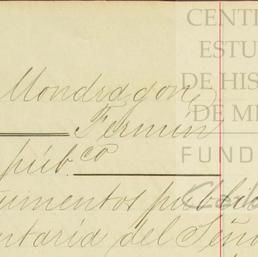 CENT
ESTU
DE HIS
DE M
FUND
Mondragon,
Fermin
púb.co
umentos públi
ntaría del Seño